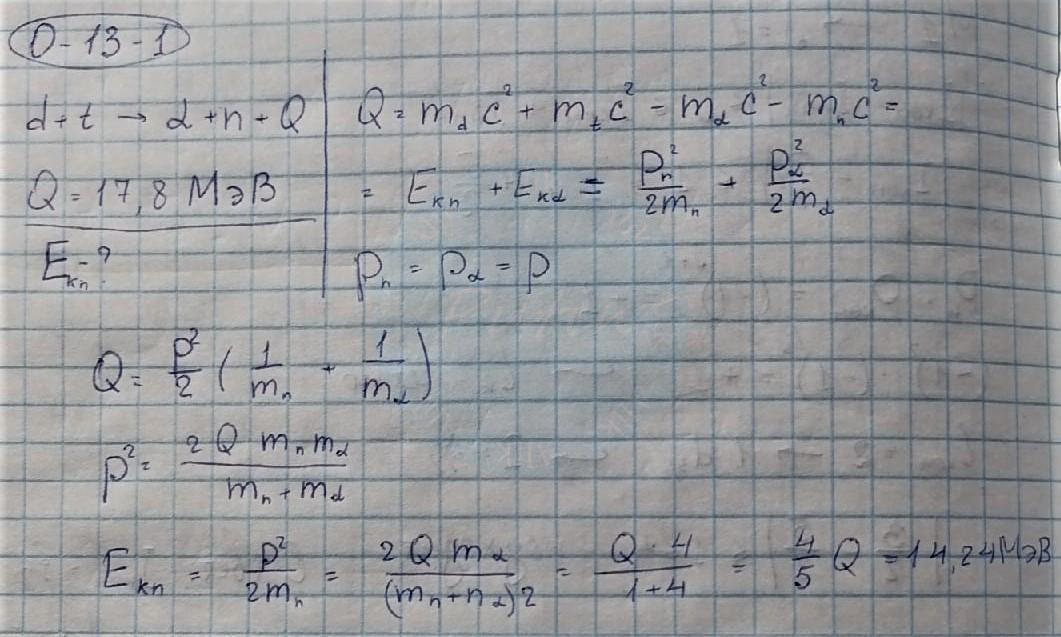 0-13-1
d+t → α+n+Q
Q = 17,8 МэВ
E_кn - ?
Q = m_d c² + m_t c² - m_α c² - m_n c² =
= E_кn + E_кα = p_n²/2m_n + p_α²/2m_α
p_n = p_α = p
Q = p²/2 (1/m_n + 1/m_α)
p² = 2 Q m_n m_α / m_n + m_α
E_кn = p²/2m_n = 2 Q m_α / (m_n + n_α) 2 = Q · 4 / 1+4 = 4/5 Q = 14,24 МэВ